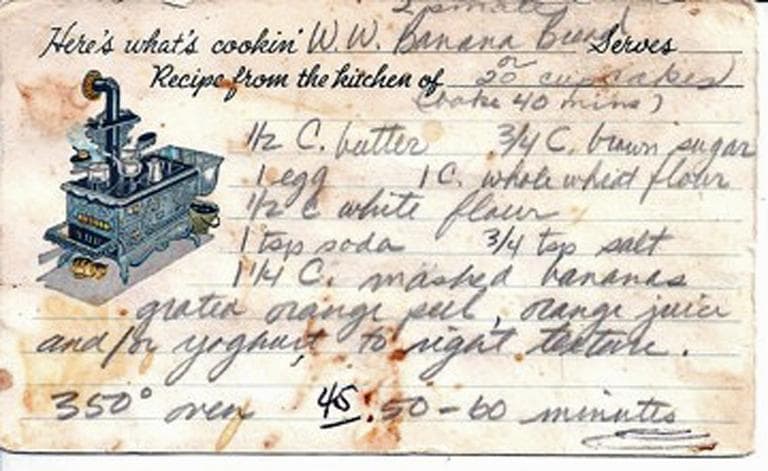 2 small
Here's what's cookin' W.W. Banana Bread Serves
or
Recipe from the kitchen of 20 cupcakes
(bake 40 mins)
1/2 C. butter 3/4 C. brown sugar
1 egg 1 C. whole wheat flour
1/2 C white flour
1 tsp soda 3/4 tsp salt
1 1/4 C. mashed bananas
grated orange peel, orange juice
and/or yoghurt to right texture.
350° oven 45 50-60 minutes